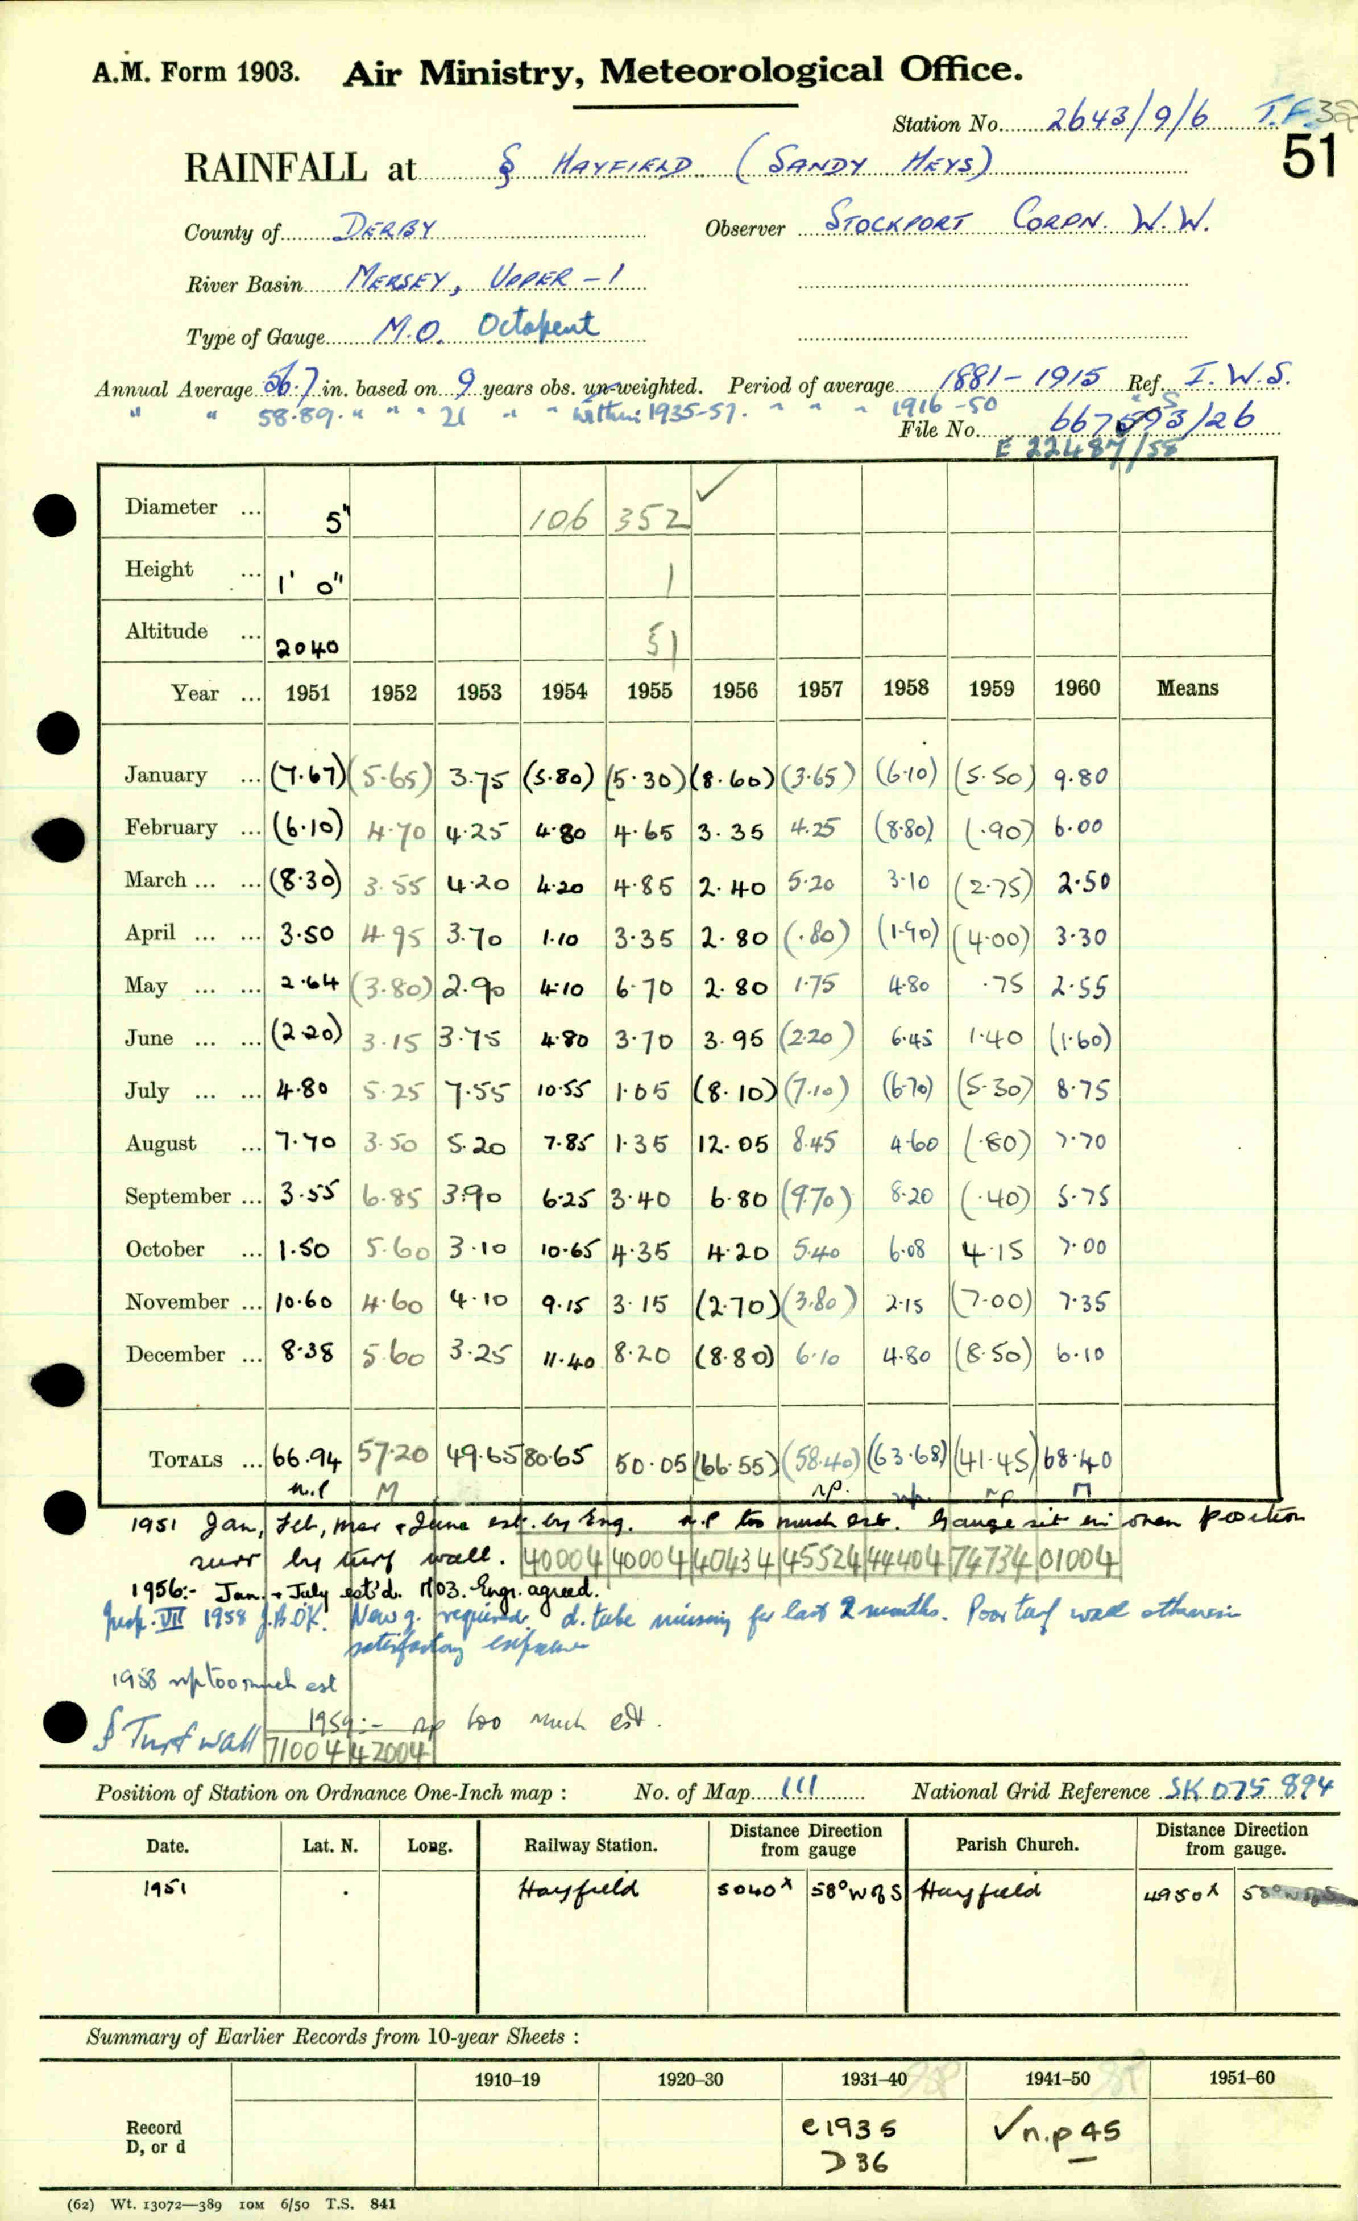 A.M. Form 1903. Air Ministry, Meteorological Office.
Station No. 2643/9/6 T.F.
51
RAINFALL at § HAYFIELD (SANDY HEYS)
County of DERBY Observer STOCKPORT CORPN. W.W.
River Basin MERSEY, UPPER - 1
Type of Gauge M.O. Octapent
Annual Average 56.7 in. based on 9 years obs. un-weighted. Period of average 1881-1915 Ref. I.W.S.
" " 58.89. " " " 21 " " within 1935-57. " " " 1916-50 " S
File No. 667593/26
E 22487/58
Diameter ... 5" 106 352 ✓
Height ... 1' 0" 1
Altitude ... 2040 51
Year ... 1951 1952 1953 1954 1955 1956 1957 1958 1959 1960 Means
January ... (7.67) (5.65) 3.75 (5.80) (5.30) (8.60) (3.65) (6.10) (5.50) 9.80
February ... (6.10) 4.70 4.25 4.80 4.65 3.35 4.25 (8.80) (.90) 6.00
March ... ... (8.30) 3.55 4.20 4.20 4.85 2.40 5.20 3.10 (2.75) 2.50
April ... ... 3.50 4.95 3.70 1.10 3.35 2.80 (.80) (1.90) (4.00) 3.30
May ... ... 2.64 (3.80) 2.90 4.10 6.70 2.80 1.75 4.80 .75 2.55
June ... ... (2.20) 3.15 3.75 4.80 3.70 3.95 (2.20) 6.45 1.40 (1.60)
July ... ... 4.80 5.25 7.55 10.55 1.05 (8.10) (7.10) (6.70) (5.30) 8.75
August ... 7.70 3.50 5.20 7.85 1.35 12.05 8.45 4.60 (.80) 7.70
September ... 3.55 6.85 3.90 6.25 3.40 6.80 (9.70) 8.20 (.40) 5.75
October ... 1.50 5.60 3.10 10.65 4.35 4.20 5.40 6.08 4.15 7.00
November ... 10.60 4.60 4.10 9.15 3.15 (2.70) (3.80) 2.15 (7.00) 7.35
December ... 8.38 5.60 3.25 11.40 8.20 (8.80) 6.10 4.80 (8.50) 6.10
TOTALS ... 66.94 57.20 49.65 80.65 50.05 (66.55) (58.40) (63.68) (41.45) 68.40
n.p M np. np. np M
1951 Jan, Feb, Mar & June est. by Eng. n.p too much est. Gauge sit in open position
surr by turf wall. 40004 40004 40434 45524 44404 74734 01004
1956:- Jan. & July est'd. 1703. Engr. agreed.
Insp. VII 1958 J.B. OK. New g. required. d. tube missing for last 2 months. Poor turf wall otherwise
satisfactory exposure
1958 np too much est
1959:- np too much est.
§ Turf wall 71004 42004
Position of Station on Ordnance One-Inch map : No. of Map 111 National Grid Reference SK 075 894
Date. Lat. N. Long. Railway Station. Distance from gauge Direction Parish Church. Distance from gauge. Direction
1951 Hayfield 5040ˣ 58° W of S Hayfield 4950ˣ 58° W of S
Summary of Earlier Records from 10-year Sheets :
1910–19 1920–30 1931–40 1941–50 1951–60
Record D, or d e1935 ✓n.p 45
D 36
(62) Wt. 13072—389 10M 6/50 T.S. 841